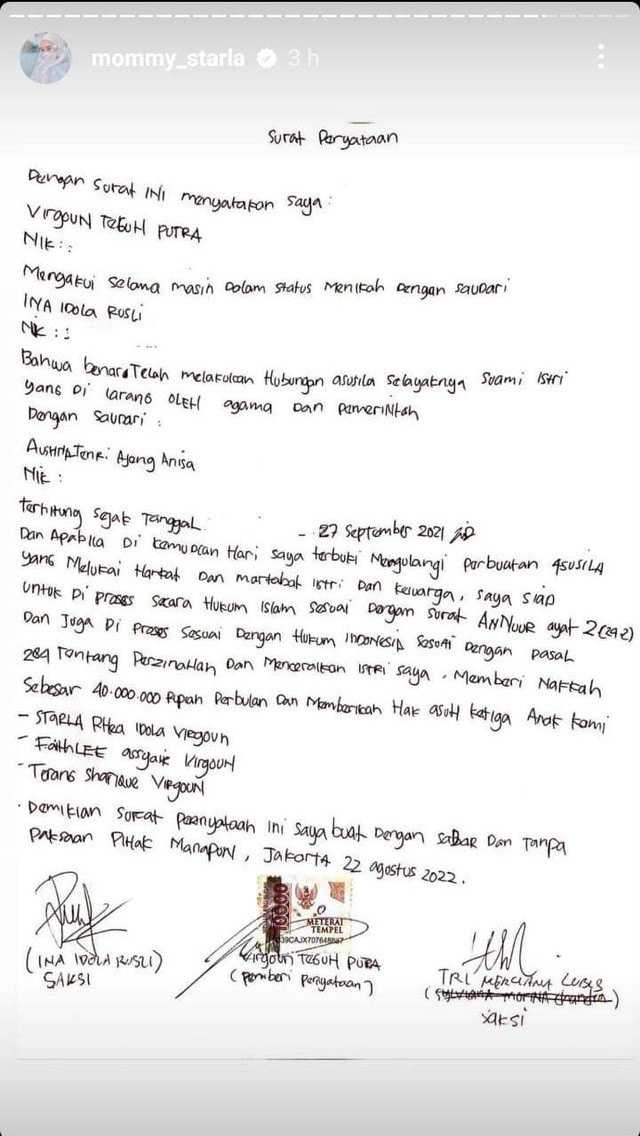 mommy_starla 3 h
Surat Peryataan
Dengan Surat INI menyatakan saya :
VIRGOUN TEGUH PUTRA
NIK : :
Mengakui selama masih Dalam status Menikah Dengan saudari
INA IDOLA RUSLI
NIK : :
Bahwa benar Telah melakukan Hubungan asusila selayaknya Suami istri
yang Di larang OLEH agama Dan PemeriNtah
Dengan Saudari :
Ajeng Anisa
NIK :
terhitung sejak Tanggal - 27 September 2021
Dan Apabila Di kemudian Hari saya terbukti Mengulangi perbuatan ASUSILA
yang Melukai Harkat Dan martabat istri Dan Keluarga, saya siap
untuk Di proses secara Hukum Islam sesuai Dengan Surat ANNUUR ayat 2 (24:2)
Dan Juga Di Proses Sesuai Dengan Hukum INDONESIA sesuai Dengan pasal
284 Tentang Perzinahan Dan Menceraikan istri saya, Memberi Nafkah
Sebesar 40.000.000 Rupiah Perbulan Dan Memberikan Hak asuh ketiga Anak kami
- STARLA RHea IDOLA VIRGOUN
- FaithLEE assyaik VirgouN
- Terang Sharique VIRGOUN
Demikian surat Peenyataan ini saya buat Dengan saBaR Dan Tanpa
Paksaan Pihak ManaPUN, Jakarta 22 agostus 2022.
10000
METERAI
TEMPEL
(INA IDOLA RUSLI)
SAKSI
Virgoun TEGUH PUTRA
(pemberi peryataan)
TRI LUBIS
SAKSI